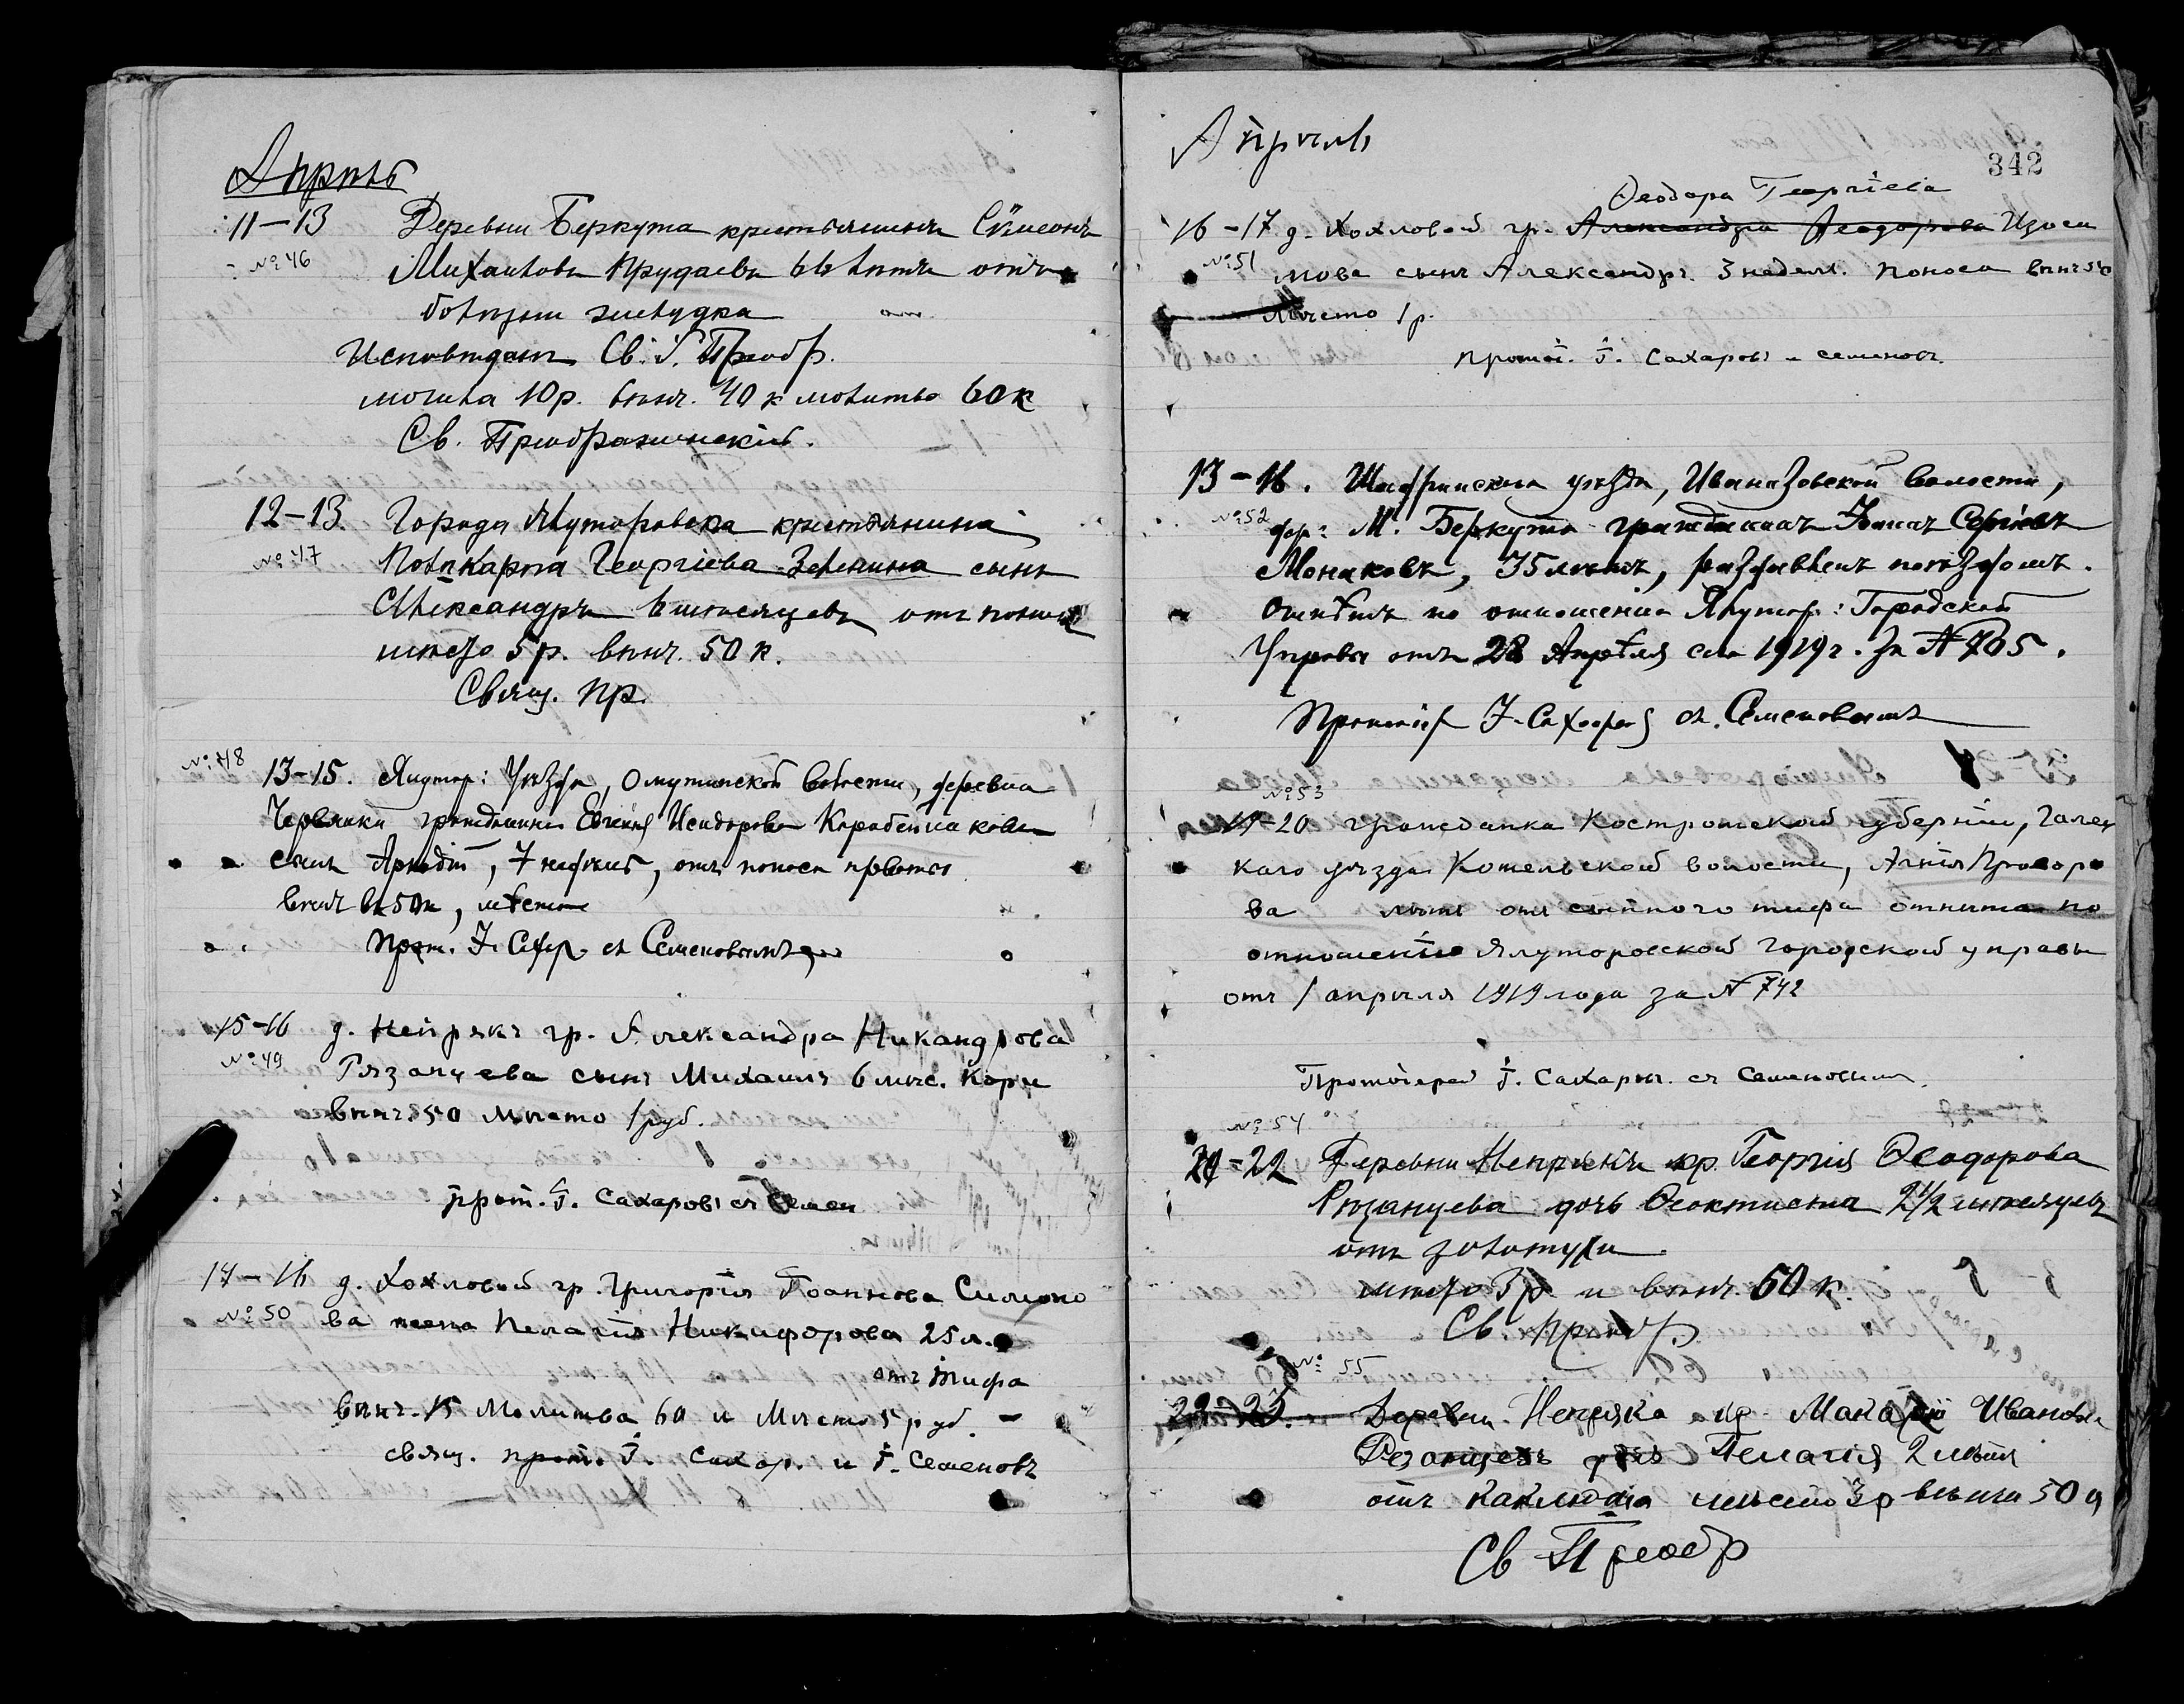 Апрѣль
11-13 Деревни Беркута крестьянинъ Сѵмеонъ
№ 46 Михаиловъ Прудаевъ 66 лѣтъ отъ
болѣзни желудка
Исповѣдалъ Св. Преобр.
могила 10 р. вѣнч. 40 к молитва 60 к
Св. Преображенскій.
12-13. Города Ялуторовска крестьянина
№ 47 Поликарпа Георгіева Зеленина сынъ
Александръ 6 мѣсяцевъ отъ поноса
мѣсто 5 р. вѣнч. 50 к.
Свящ. Пр.
№ 48 13-15. Ялутор: Уѣзда, Омутинской волости, деревни
Червянки гражданина Евгенія Исидорова Коробейникова
сынъ Аркадій, 7 недѣль, отъ поноса
вѣнч 50 к, мѣсто
Прот. І. Сахар. съ Семеновымъ
15-16 д. Непрякъ гр. Александра Никандрова
№ 49 Рязанцева сынъ Михаилъ 6 мѣс. Кори
вѣнч. 50 Мѣсто 1 руб.
прот. І. Сахаровъ съ Семен
14-16 д. Хохловой гр. Григорія Іоаннова Симоно
№ 50 ва жена Пелагія Никифорова 25 л.
отъ Тифа
вѣнч. 15 Молитва 60 и Мѣсто 5 руб. -
свящ. прот. І. Сахар. и І. Семеновъ
Апрѣль
342
Ѳеодора Георгіева
16-17 д. Хохловой гр. Александра Ѳеодорова Изоси
№ 51 мова сынъ Александръ 3 недѣл. поноса вѣнч 50
Мѣсто 1 р.
протоі. І. Сахаровъ и Семеновъ.
13-16. Шадринскаго уѣзда, Иваназовской волости,
№ 52 дер: М. Беркута гражданинъ Іоаннъ Сергіевъ
Монаковъ, 35 лѣтъ, раздавленъ поѣздомъ.
Отпѣтъ по отношенію Ялутор: Городской
Управы отъ 28 Апрѣля сего 1919 г. за № 705.
Протоіер І. Сахаровъ съ Семеновымъ
№ 53
19-20 гражданка Костромской губерніи, Галич
каго уѣзда Котельской волости, Агнія Прохоро
ва лѣтъ отъ сыпного тифа отпѣта по
отношенію Ялуторовской Городской управы
отъ 1 апрѣля 1919 года за № 742
Протоіерей І. Сахаровъ съ Семеновымъ.
№ 54
20-22 Деревни Непряхи кр. Георгія Ѳеодорова
Рязанцева дочь Ѳеоктиста 2 1/2 мѣсяцевъ
отъ золотухи
мѣсто 3 р. и вѣнч. 50 к.
Св. Преобр
№ 55
22-23. Деревни Непряка кр. Макарій Ивановъ
Резанцевъ дочь Пелагія 2 лѣтъ
отъ Каклюша мѣсто 3 р вѣнчи 50 к
Св Преобр